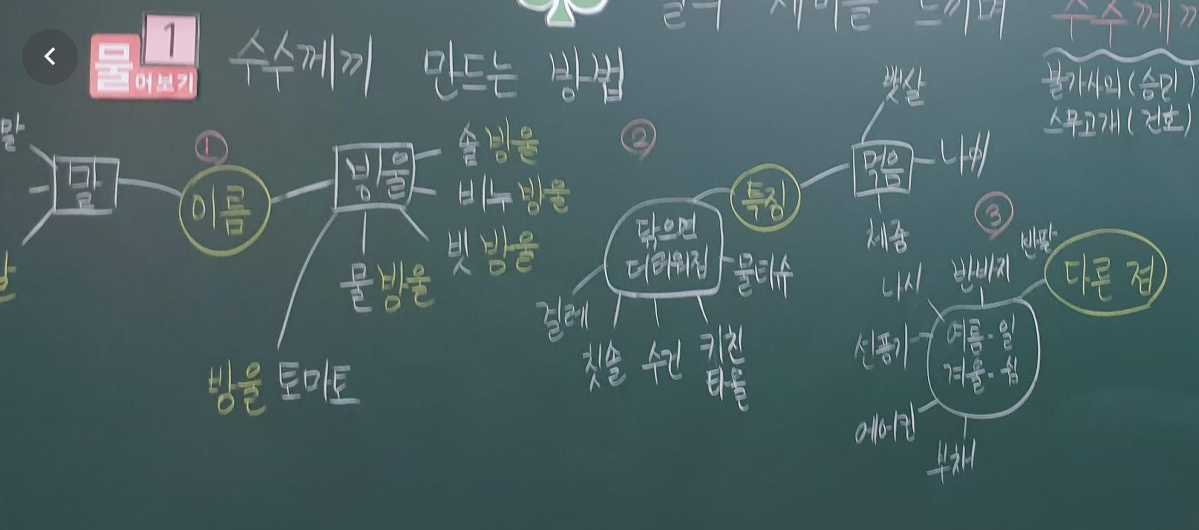 물어보기 1
수수께끼 만드는 방법
재미를 느끼며
수수께끼
불가사의(승리)
스무고개(건호)
말
말
①
이름
방울
솔방울
비누방울
빗방울
물방울
방울토마토
②
특징
닦으면
더러워짐
걸레
칫솔
수건
키친
타올
물티슈
먹음
햇살
나이
체중
③
다른 점
여름-일
겨울-쉼
반팔
반바지
나시
선풍기
에어컨
부채